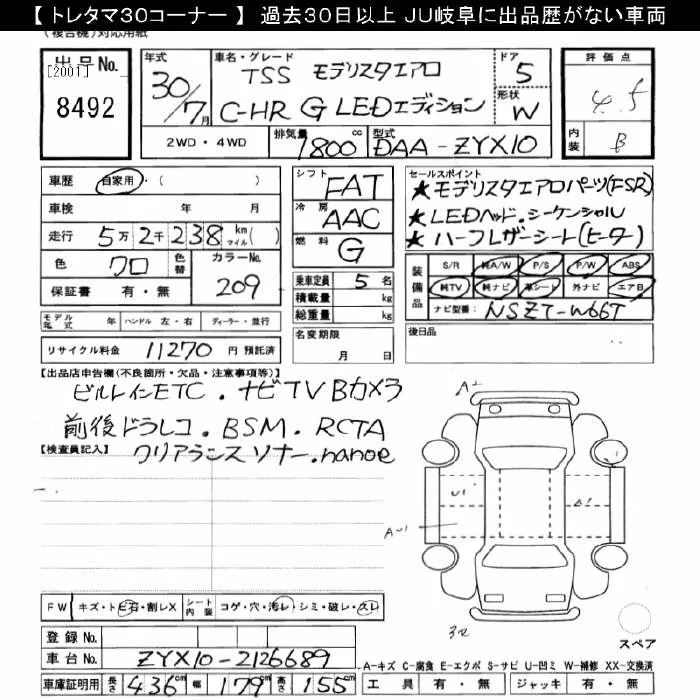 【 トレタマ30コーナー 】 過去30日以上 JU岐阜に出品歴がない車両
(複合機)対応用紙
出品No. [2001] 8492
年式 30/7月
車名・グレード TSS モデリスタエアロ
C-HR G LEDエディション
ドア 5
形状 W
評価点 4.5
内装 B
2WD・4WD 排気量 1800 cc 型式 DAA-ZYX10
車歴 自家用・( )
車検 年 月
走行 5万2千238 km マイル( )
色 クロ 色替 カラーNo. 209
保証書 有・無
シフト FAT
冷房 AAC
燃料 G
乗車定員 5名
積載量 kg
総重量 kg
名変期限 月 日
セールスポイント
★モデリスタエアロパーツ(FSR)
★LEDヘッド・シーケンシャル
★ハーフレザーシート(ヒーター)
装備品 S/R 純A/W P/S P/W ABS
純TV 純ナビ 革シート 外ナビ エアB
ナビ型番: NSZT-W66T
モデル年式 年 ハンドル 左・右 ディーラー・並行
リサイクル料金 11270 円 預託済
後日品
【出品店申告欄(不良箇所・欠品・注意事項等)】
ビルトインETC・ナビTVBカメラ
前後ドラレコ・BSM・RCTA
クリアランスソナー・nanoe
【検査員記入】
A2
U1
A2
AU1
FW キズ・トビ石・割レX シート内装 コゲ・穴・汚レ・シミ・破レ・スレ
登録No.
車台No. ZYX10-2126689
車庫証明用 長さ 436cm 幅 179cm 高さ 155cm
スペア
A-キズ C-腐食 E-エクボ S-サビ U-凹ミ W-補修 XX-交換済
工具 有・無 ジャッキ 有・無